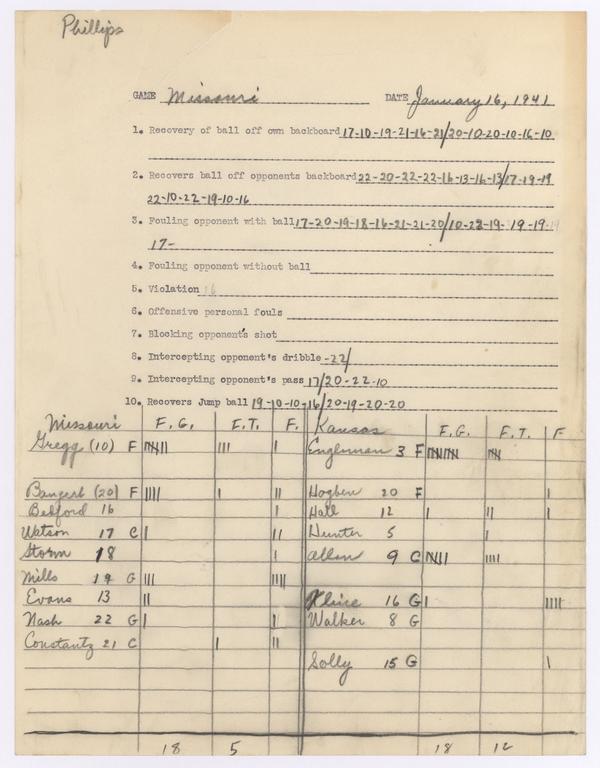 Phillips
GAME Missouri DATE January 16, 1941
1. Recovery of ball off own backboard 17-10-19-21-16-21/20-10-20-10-16-10
2. Recovers ball off opponents backboard 22-20-22-22-16-13-16-13/17-19-19
22-10-22-19-10-16
3. Fouling opponent with ball 17-20-19-18-16-21-21-20/10-22-19-19-19-
17-
4. Fouling opponent without ball
5. Violation 16
6. Offensive personal fouls
7. Blocking opponent's shot
8. Intercepting opponent's dribble -22/
9. Intercepting opponent's pass 17/20-22-10
10. Recovers Jump ball 19-10-10-16/20-19-20-20
Missouri F.G. F.T. F. Kansas F.G. F.T. F
Gregg (10) F |||| || ||| | Engleman 3 F |||| |||| ||||
Bangert (20) F |||| | || Hogben 20 F |
Bedford 16 | Hall 12 | || |
Watson 17 C | || Hunter 5 |
Storm 18 | Allen 9 C |||| || ||||
Mills 19 G ||| |||| Kline 16 G | ||||
Evans 13 || Walker 8 G
Nash 22 G | |
Constantz 21 C | || Solly 15 G |
18 5 18 12